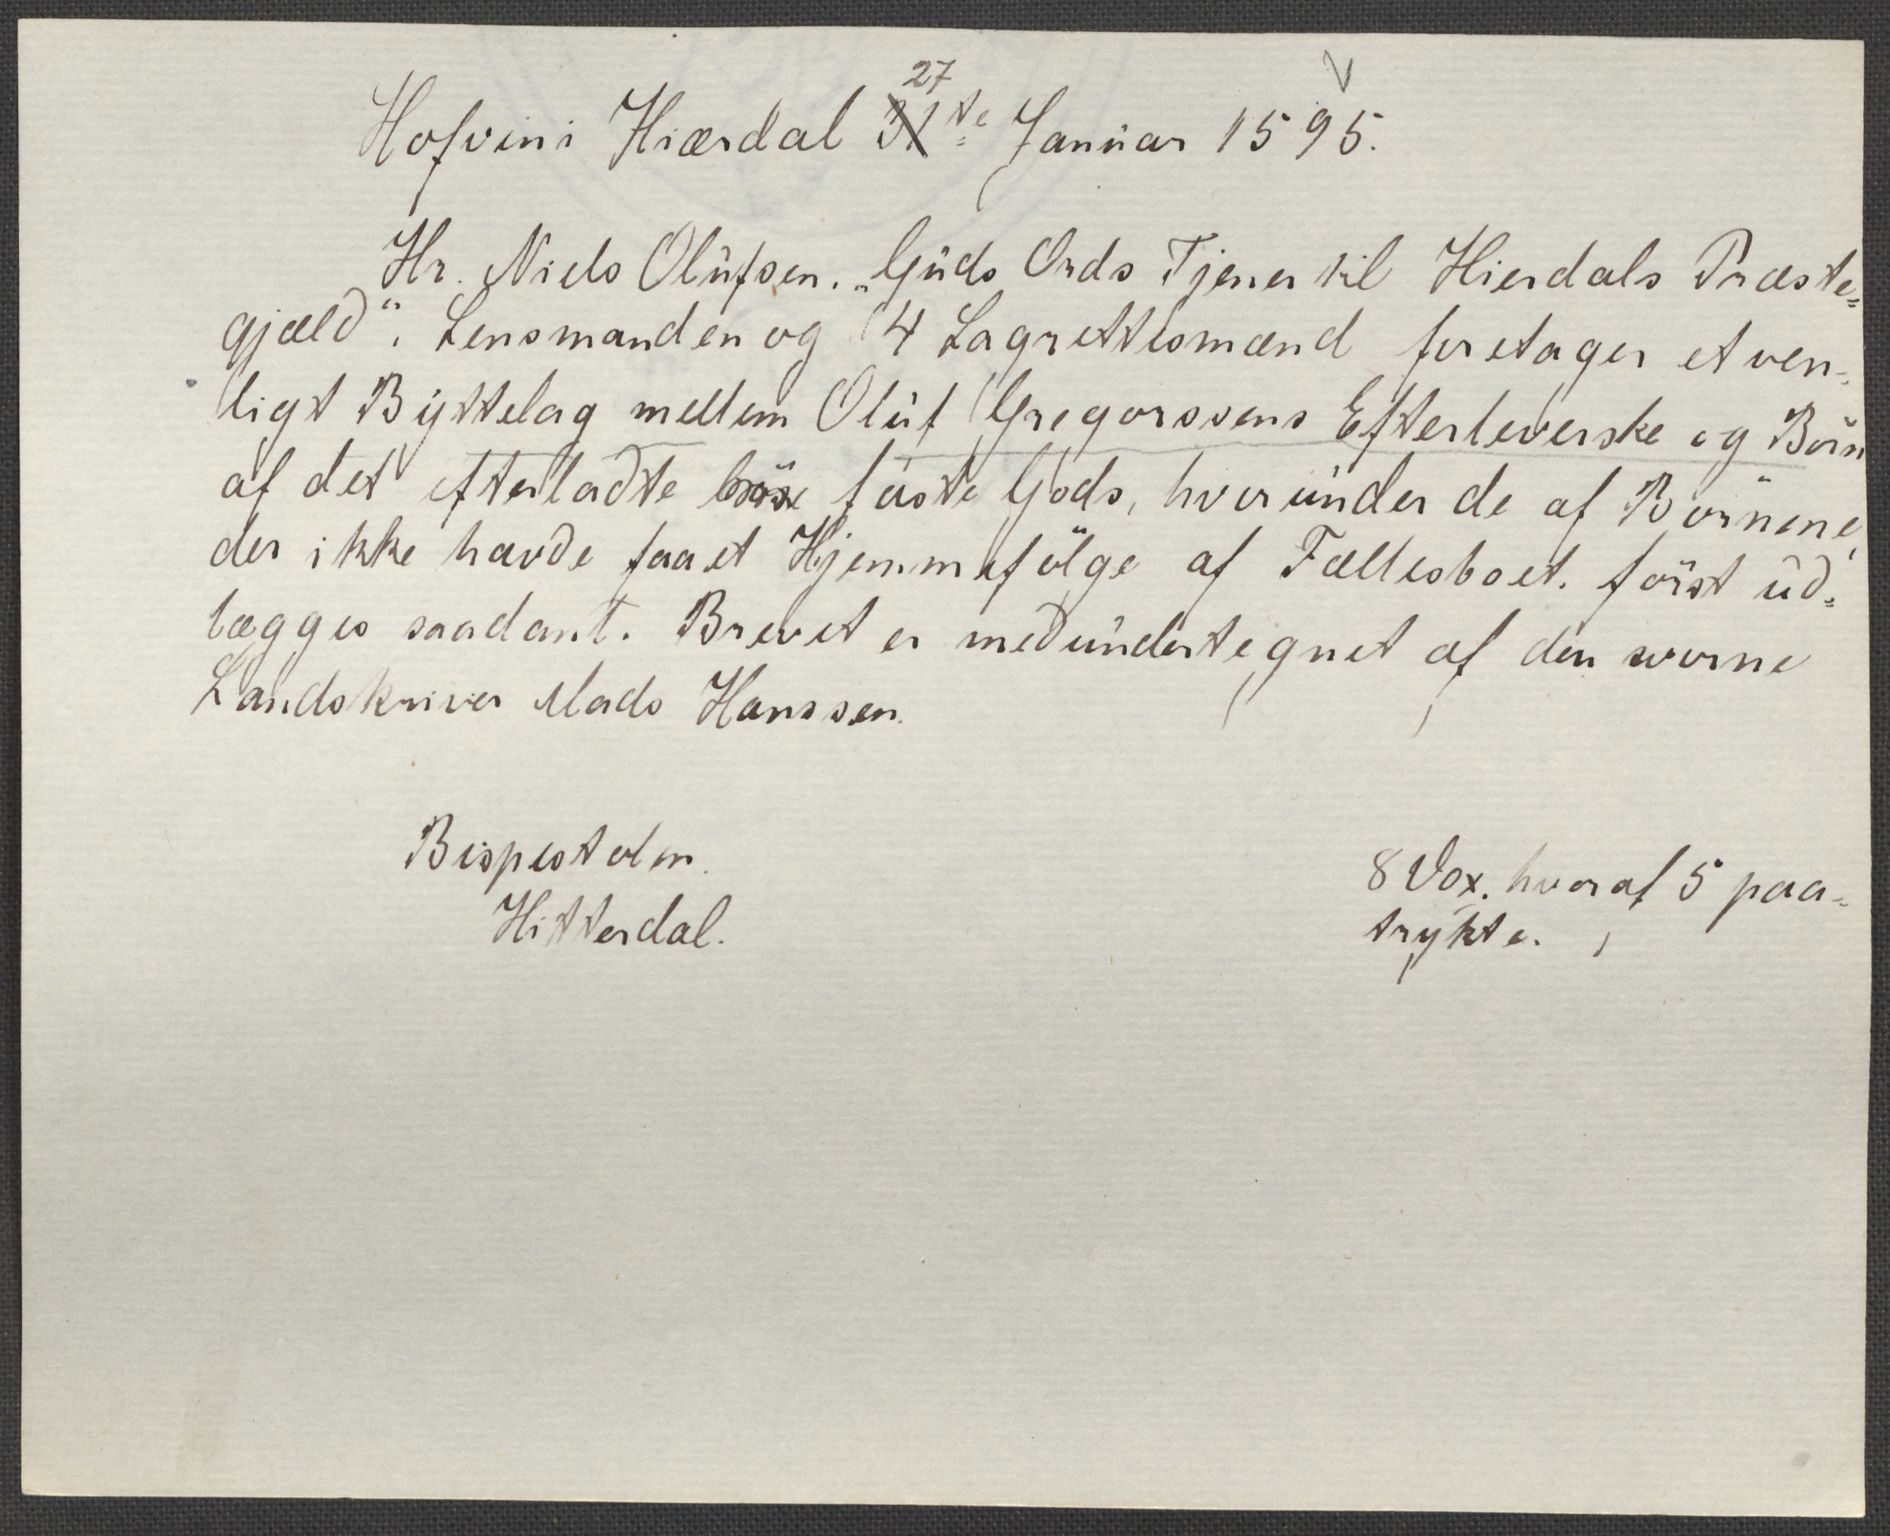 Hofvin i Hiærdal 27te Januar 1595.
Hr. Niels Olufsen. „Guds Ords Tjener til Hierdals Præste-
gjæld“. Lensmanden og 4 Lagrettesmænd foretager et ven-
ligt Byttelag mellem Oluf Gregorssens Efterleverske og Börn
af det efterladte faste Gods, hvorunder de af Börnene,
der ikke havde faaet Hjemmefölge af Fællesboet. först ud-
lægges saadant. Brevet er medundertegnet af den svorne
Landskriver Mads Hanssen.
Bispestolen.
Hitterdal.
8 Vox. hvoraf 5 paa-
trykte.